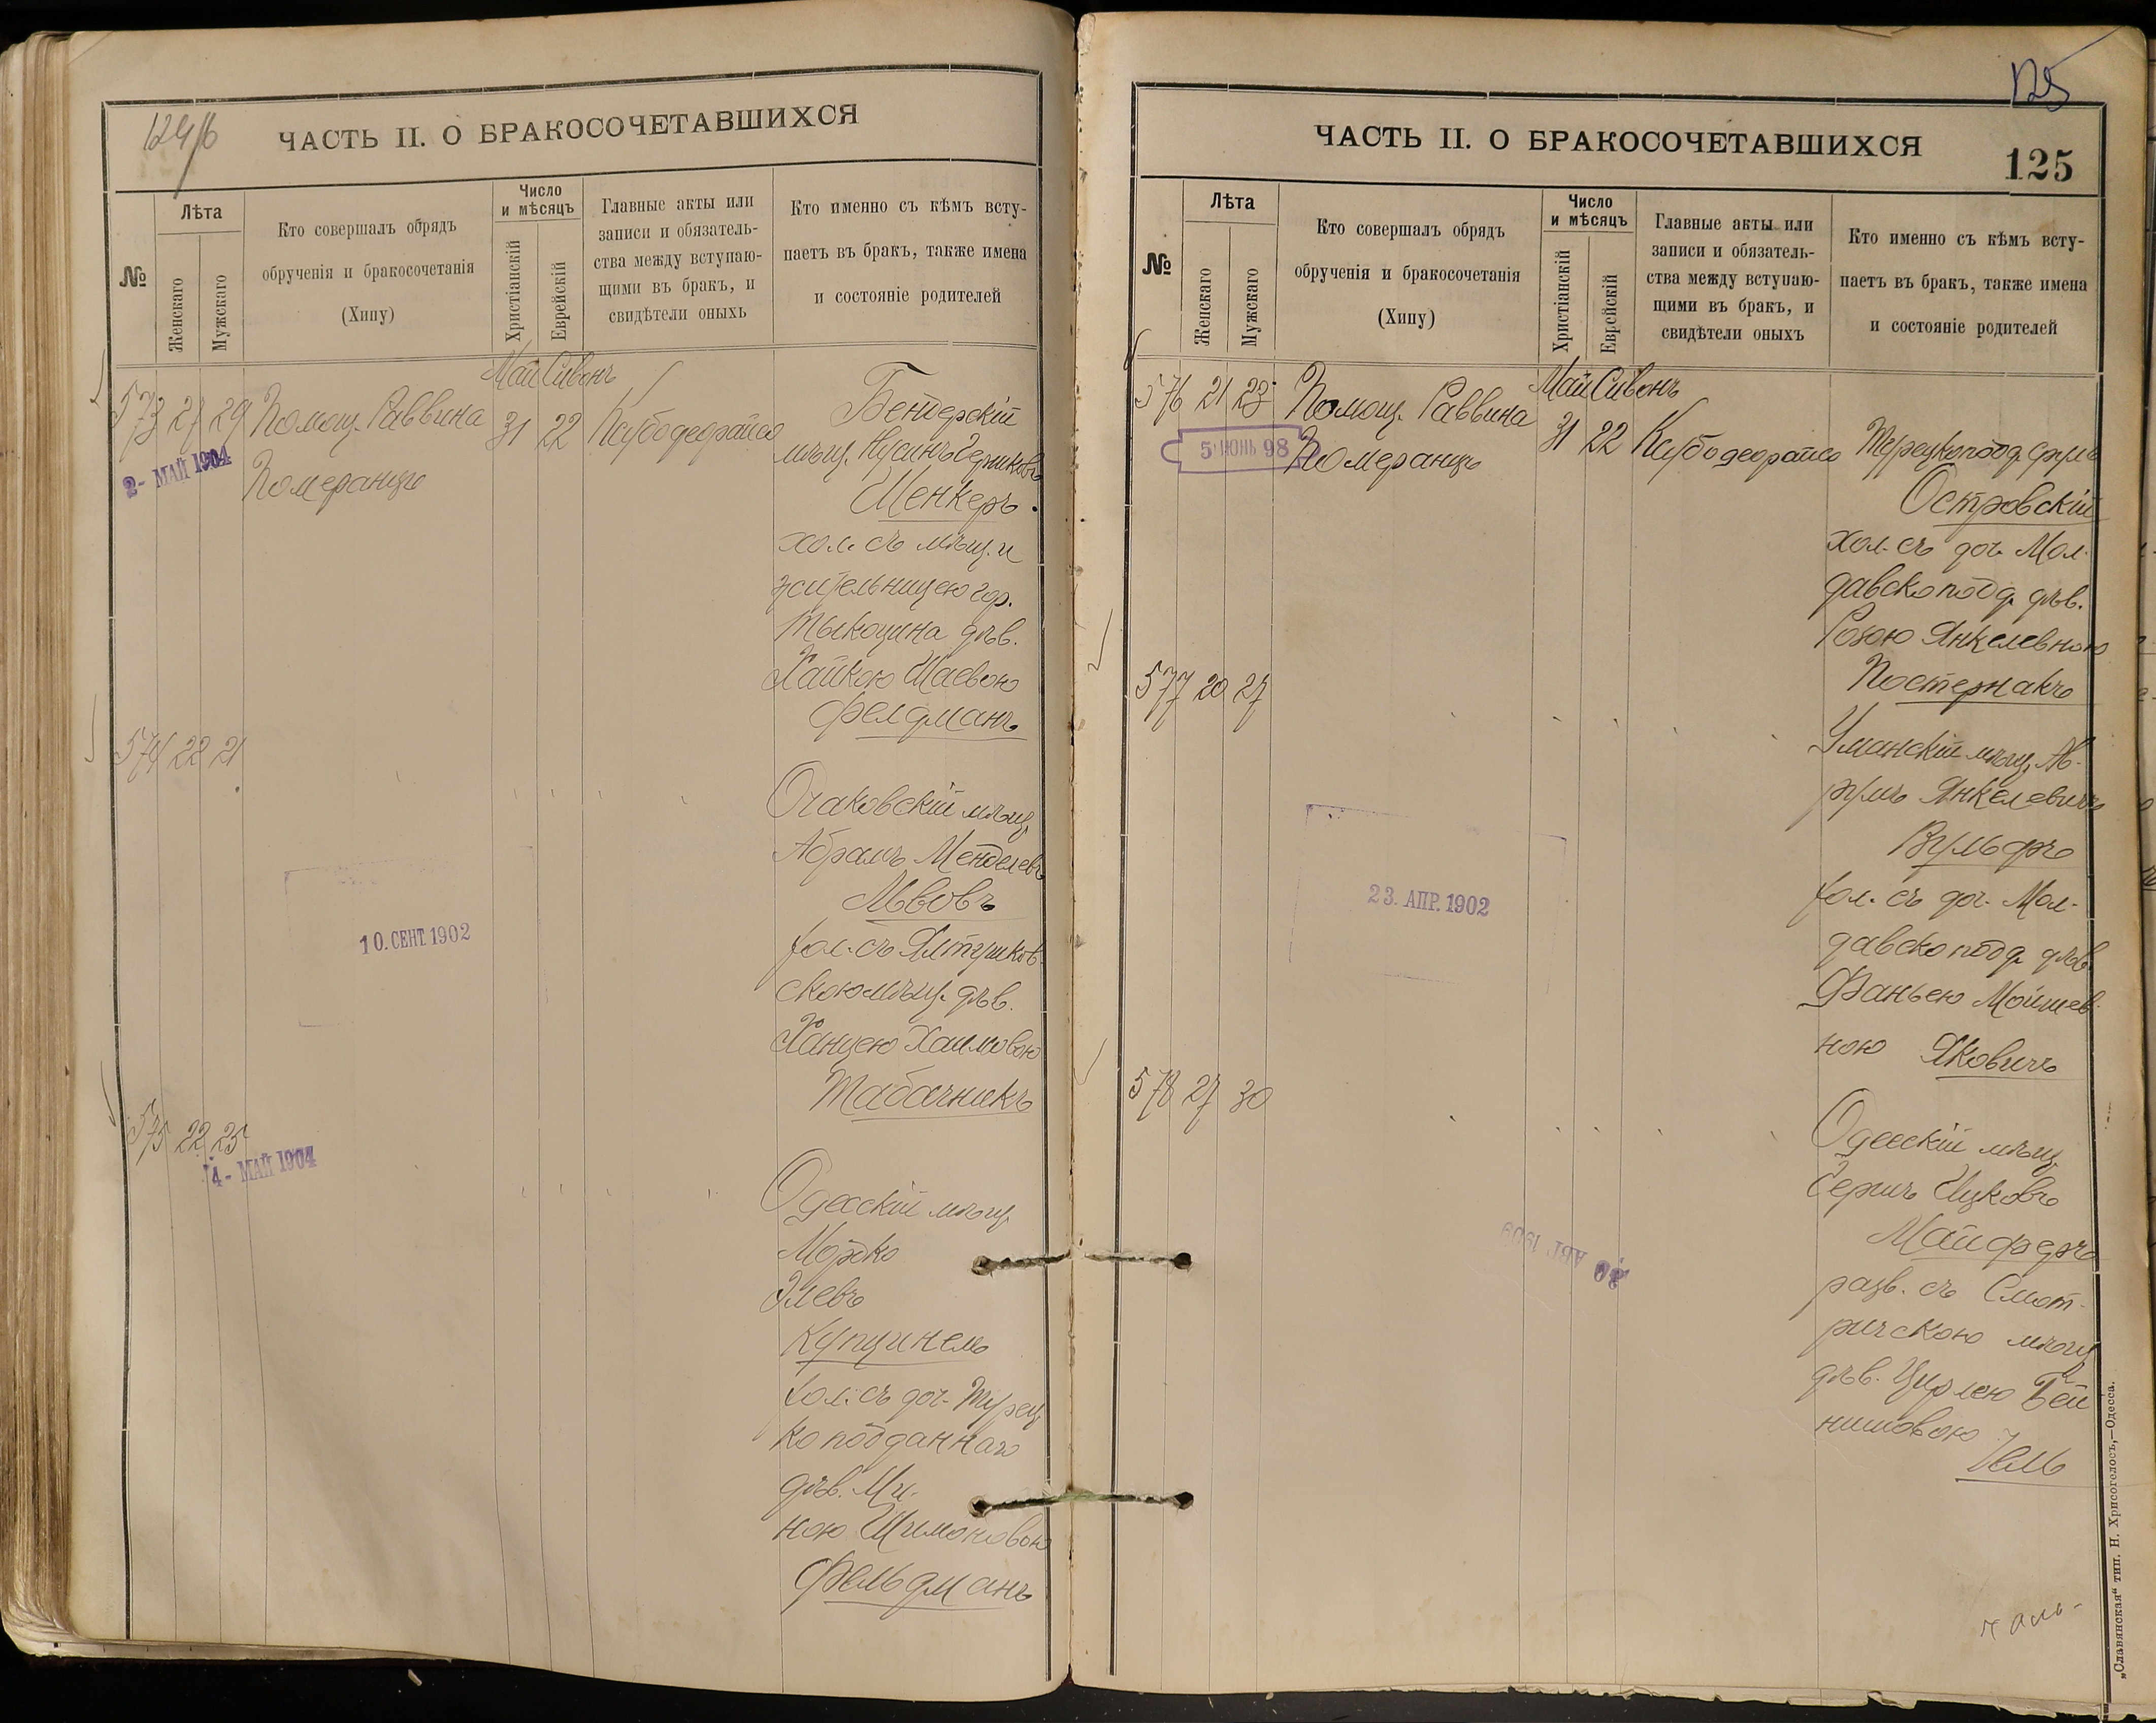 124/б
ЧАСТЬ II. О БРАКОСОЧЕТАВШИХСЯ
№
Лѣта
Женскаго
Мужскаго
Кто совершалъ обрядъ
обрученія и бракосочетанія
(Хипу)
Число
и мѣсяцъ
Христіанскій
Еврейскій
Главные акты или
записи и обязатель-
ства между вступаю-
щими въ бракъ, и
свидѣтели оныхъ
Кто именно съ кѣмъ всту-
паетъ въ бракъ, также имена
и состояніе родителей
Май Сивонъ
573 27 29 Помощ. Раввина 31 22
2- МАЙ 1904
Померанцъ
Бендерскій
мѣщ.
Шенкеръ
хол. съ мѣщ. и
жительницею гор.
Тыкоцина дѣв.
Хайкою Шаевою
Фелдманъ
574 22 21
Очаковскій мѣщ.
Абрамъ Менделевъ
Львовъ
хол. съ Ялтушков-
скою мѣщ. дѣв.
Ханцею Хаимовою
Табачникъ
10. СЕНТ. 1902
575 22 25
4- МАЙ 1904
Одесскій мѣщ.
Мошко
Элевъ
Купцинель
хол. съ доч. Турец
коподданнаго
дѣв. Ми-
ною Шимоновою
Фельдманъ
125
ЧАСТЬ II. О БРАКОСОЧЕТАВШИХСЯ
125
№
Лѣта
Женскаго
Мужскаго
Кто совершалъ обрядъ
обрученія и бракосочетанія
(Хипу)
Число
и мѣсяцъ
Христіанскій
Еврейскій
Главные акты или
записи и обязатель-
ства между вступаю-
щими въ бракъ, и
свидѣтели оныхъ
Кто именно съ кѣмъ всту-
паетъ въ бракъ, также имена
и состояніе родителей
Май Сивонъ
576 21 23 Помощ. Раввина 31 22
5 ИЮНЬ 98
Померанцъ
Турецкопод.
Островскій
хол. съ доч. Мол-
давскопод. дѣв.
Розою Янкелевною
Постернакъ
577 20 27
Уманскій мѣщ. Ав-
румъ Янкелевичъ
Вульфъ
хол. съ доч. Мол-
давскопод. дѣв.
Фаньею Мойшев-
ною Яковичъ
23. АПР. 1902
578 27 30
Одесскій мѣщ.
Берлъ Ицковъ
Майферъ
разв. съ Смот-
ричскою мѣщ.
дѣв. Цирлею Бей
нишовою
20 АВГ 1909
„Славянская“ тип. Н. Хрисогелосъ,—Одесса.